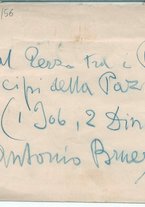 /56
al Perzo tra i
cipi della Paz
(1 Job, 2 Din
Antonio Brue